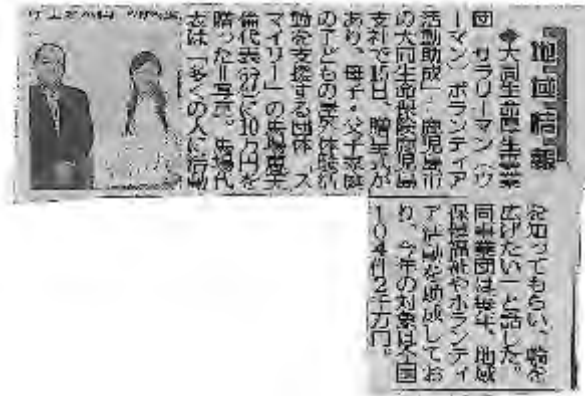 地域情報
◆大同生命厚生事業
団「サラリーマン（ウ
ーマン）ボランティア
活動助成」 鹿児島市
の大同生命保険鹿児島
支社で15日、贈呈式が
あり、母子・父子家庭
の子どもの暴 体験活
動を支援する団体「ス
マイリー」の馬場
代表 に10万円を
贈った＝写真。馬場代
表は「多くの人に活動
を知ってもらい、輪を
広げたい」と話した。
同事業団は毎年、地域
保健福祉やボランティ
ア活動を助成してお
り、今年の対象は全国
104件2千万円。